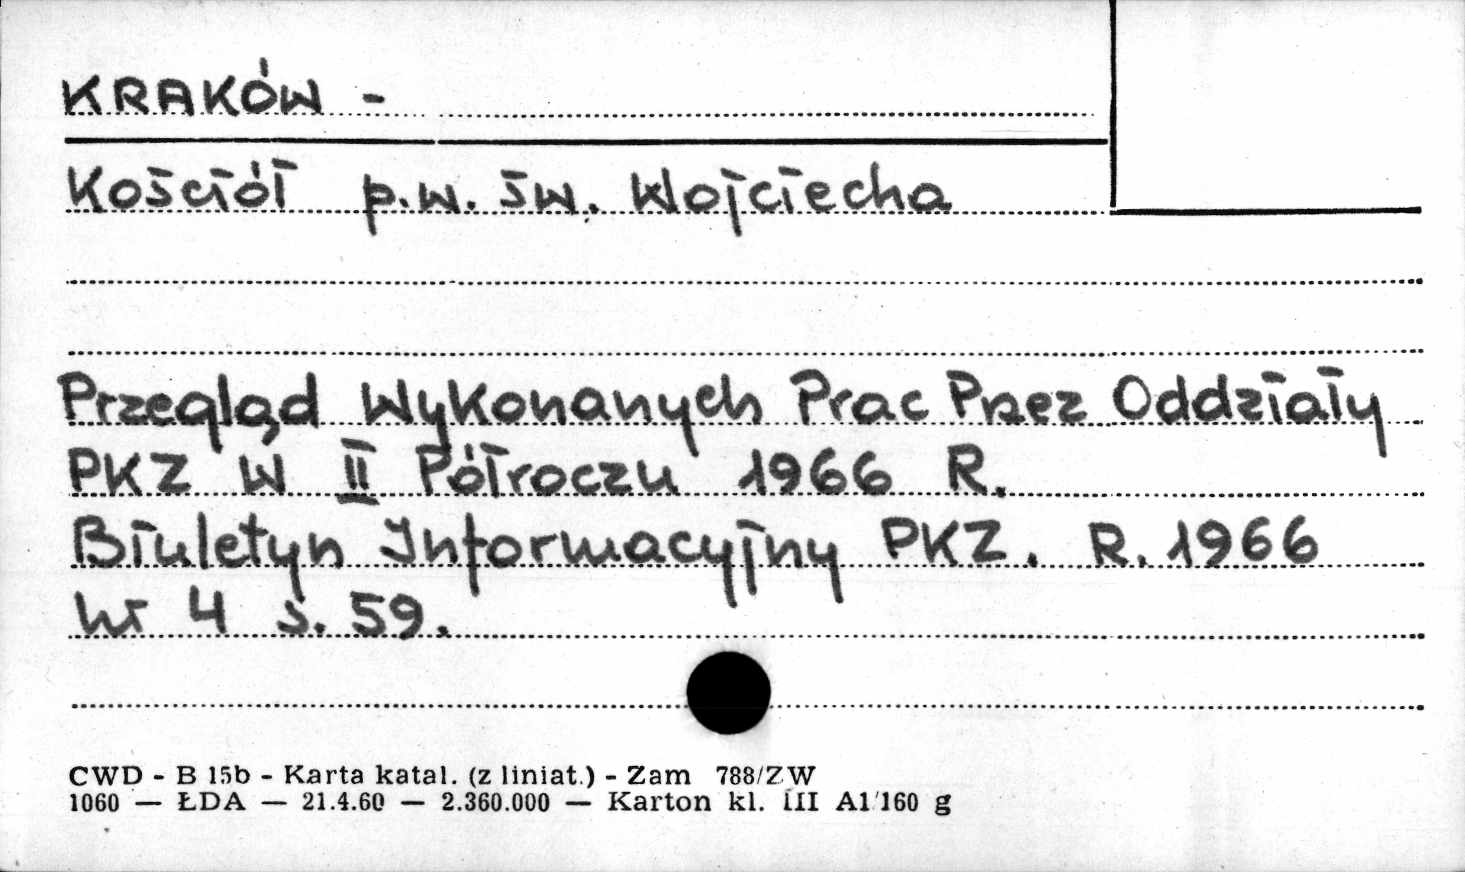 KRAKÓW -
Kościół p.w. św. Wojciecha
Przegląd Wykonanych Prac Przez Oddziały
PKZ W II Półroczu 1966 R.
Biuletyn Informacyjny PKZ. R. 1966
nr 4 s. 59.
CWD - B 15b - Karta katal. (z liniat.) - Zam 788/ZW
1060 — ŁDA — 21.4.60 — 2.360.000 — Karton kl. III A1/160 g